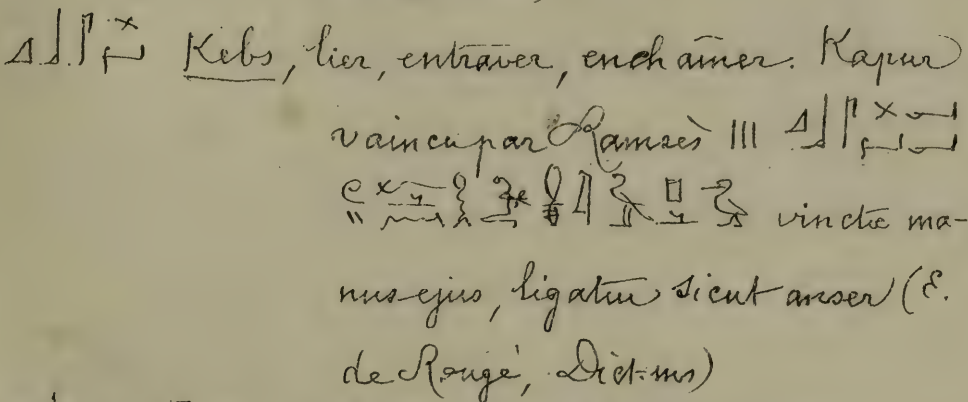 Kebs, lier, entraver, enchaîner. Kapur
vaincu par Ramsès III
vinctæ ma-
nus ejus, ligatur sicut anser (E.
de Rougé, Dict. ms)